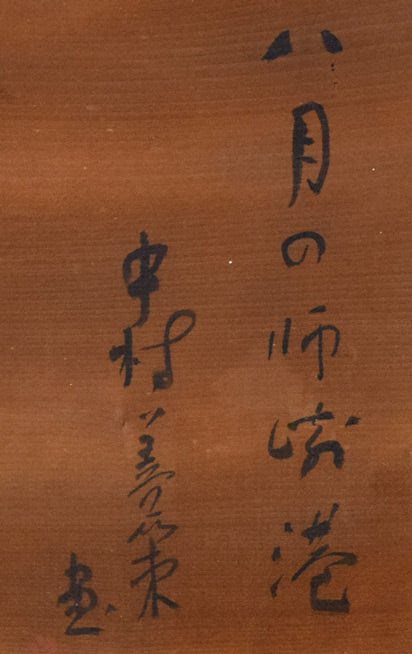 八月の師崎港
中村善策
画